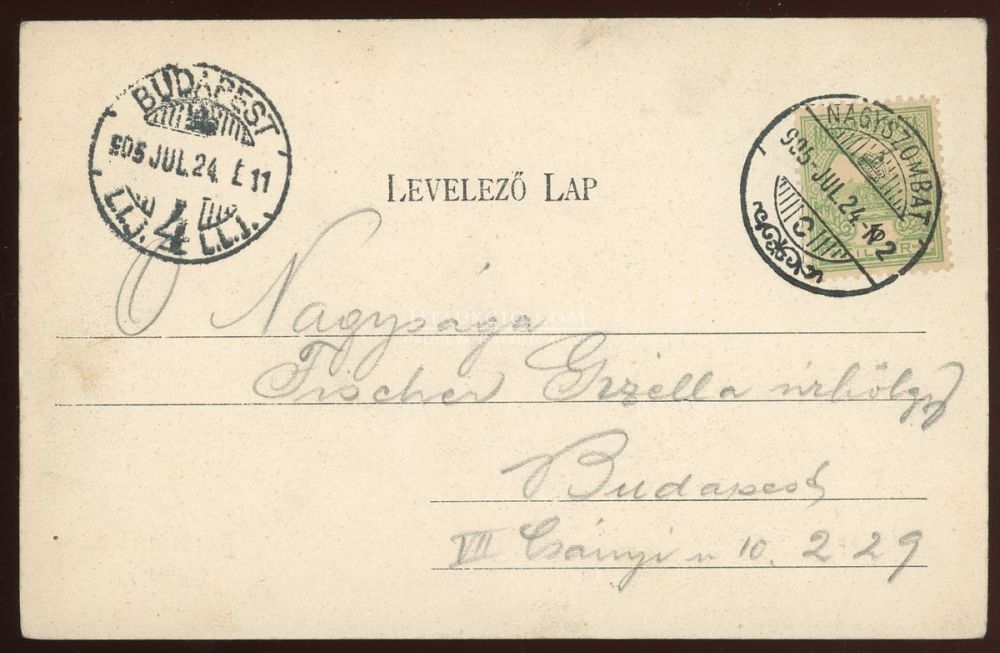 BUDAPEST
905 JUL. 24. É 11
4
LEVELEZŐ LAP
NAGYSZOMBAT
905 JUL. 24. N 2
C
Ő Nagysága
Fischer Gizella úrhölgy
Budapest
VII Csányi u 10. 2 29